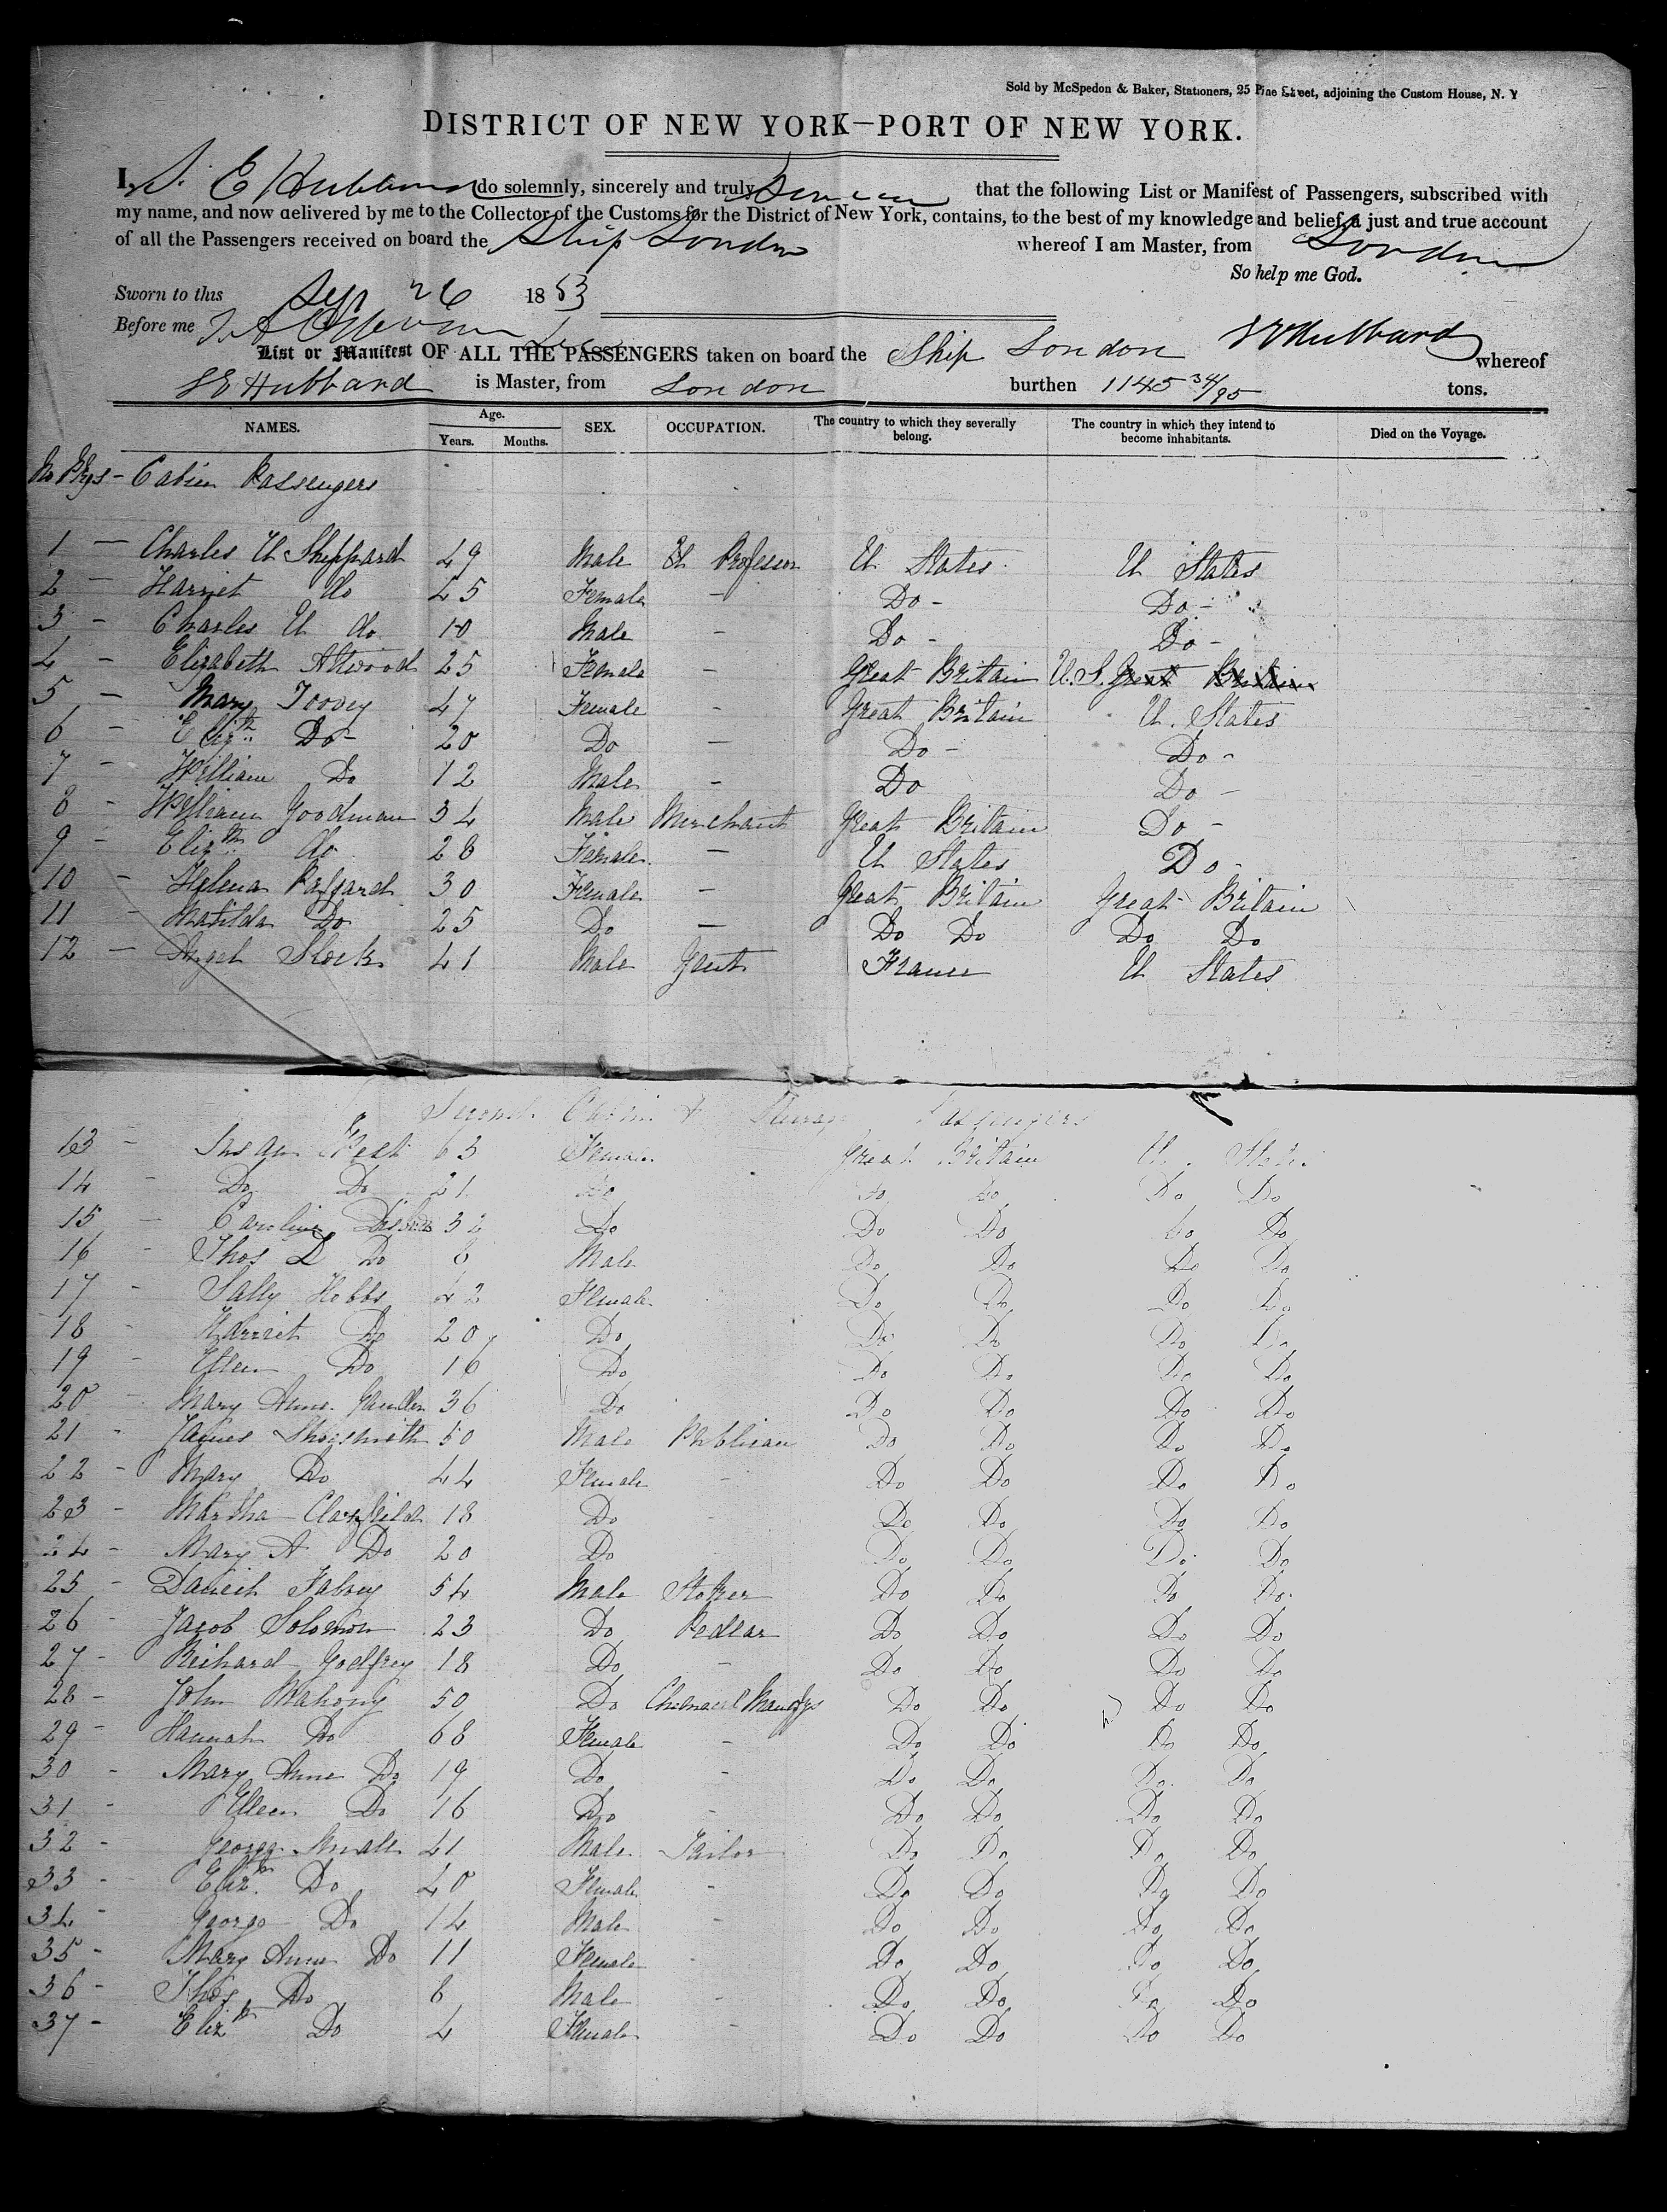 Sold by McSpedon & Baker, Stationers, 25 Pine Street, adjoining the Custom House, N. Y
DISTRICT OF NEW YORK—PORT OF NEW YORK.
I, S. E Hubbard do solemnly, sincerely and truly Swear that the following List or Manifest of Passengers, subscribed with
my name, and now delivered by me to the Collector of the Customs for the District of New York, contains, to the best of my knowledge and belief, a just and true account
of all the Passengers received on board the Ship London whereof I am Master, from London
So help me God.
Sworn to this Sep 26 1853
Before me
S E Hubbard
List or Manifest OF ALL THE PASSENGERS taken on board the Ship London whereof
S E Hubbard is Master, from London burthen 1145 34/95 tons.
NAMES. Age. Years. Months. SEX. OCCUPATION. The country to which they severally belong. The country in which they intend to become inhabitants. Died on the Voyage.
Cabin Passengers
1 — Charles U Sheppard 49 Male Professor U States U States
2 — Harriet do 45 Female — Do - Do -
3 - Charles U do 10 Male — Do - Do -
4 - Elizabeth Atwood 25 Female — Great Britain U.S. Great Britain
5 — Mary Toovey 47 Female - Great Britain U. States
6 - Elizth Do - 20 Do — Do - Do -
7 - William Do 12 Male - Do Do -
8 - William Goodman 34 Male Merchant Great Britain Do -
9 - Elizth do 28 Female — U States Do -
10 - Helena 30 Female - Great Britain Great Britain
11 - Matilda Do 25 Do — Do Do Do Do
12 — Stock 41 Male Gent France U States
Second Cabin & Steerage Passengers
13 - Susan 63 Female Great Britain U. States
14 - Do Do 21 Do Do Do Do Do
15 - Caroline 32 Do Do Do Do Do
16 - Thos D Do 6 Male Do Do Do Do
17 - Sally Hobbs 42 Female Do Do Do Do
18 - Harriet Do 20 Do Do Do Do Do
19 - Ellen Do 16 Do Do Do Do Do
20 - Mary Anne 36 Do Do Do Do Do
21 - James Shoesmith 50 Male Publican Do Do Do Do
22 - Mary Do 44 Female - Do Do Do Do
23 - Martha 18 Do - Do Do Do Do
24 - Mary A Do 20 Do Do Do Do Do
25 - 54 Male Stoker Do Do Do Do
26 - Jacob Solomon 23 Do Pedlar Do Do Do Do
27 - Richard Godfrey 18 Do - Do Do Do Do
28 - John Mahony 50 Do Do Do Do Do
29 - Hannah Do 68 Female - Do Do Do Do
30 - Mary Anne Do 19 Do - Do Do Do Do
31 - Ellen Do 16 Do - Do Do Do Do
32 - George Small 41 Male Tailor Do Do Do Do
33 - Elizth Do 40 Female - Do Do Do Do
34 - George Do 14 Male - Do Do Do Do
35 - Mary Anne Do 11 Female - Do Do Do Do
36 - Thos Do 6 Male - Do Do Do Do
37 - Elizth Do 4 Female - Do Do Do Do